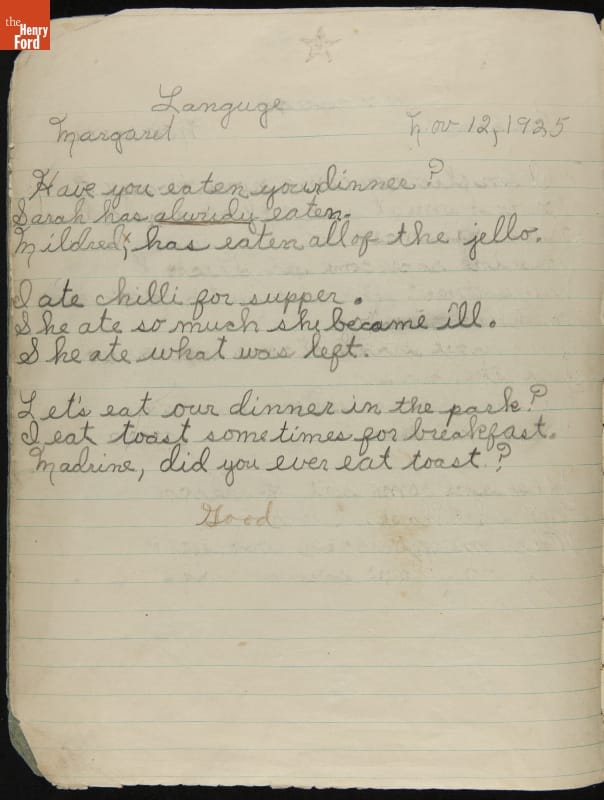 the
Henry
Ford
Languge
Margaret Nov 12, 1925
Have you eaten your dinner?
Sarah has alwridy eaten.
Mildred, has eaten all of the jello.
I ate chilli for supper.
She ate so much she became ill.
She ate what was left.
Let's eat our dinner in the park?
I eat toast sometimes for breakfast.
Madrine, did you ever eat toast?
Good